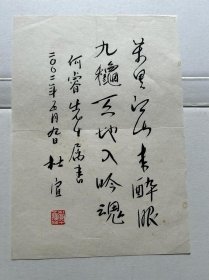 万里江山来醉眼
九秋天地入吟魂
何睿先生属书
二〇〇二年五月九日 杜宣